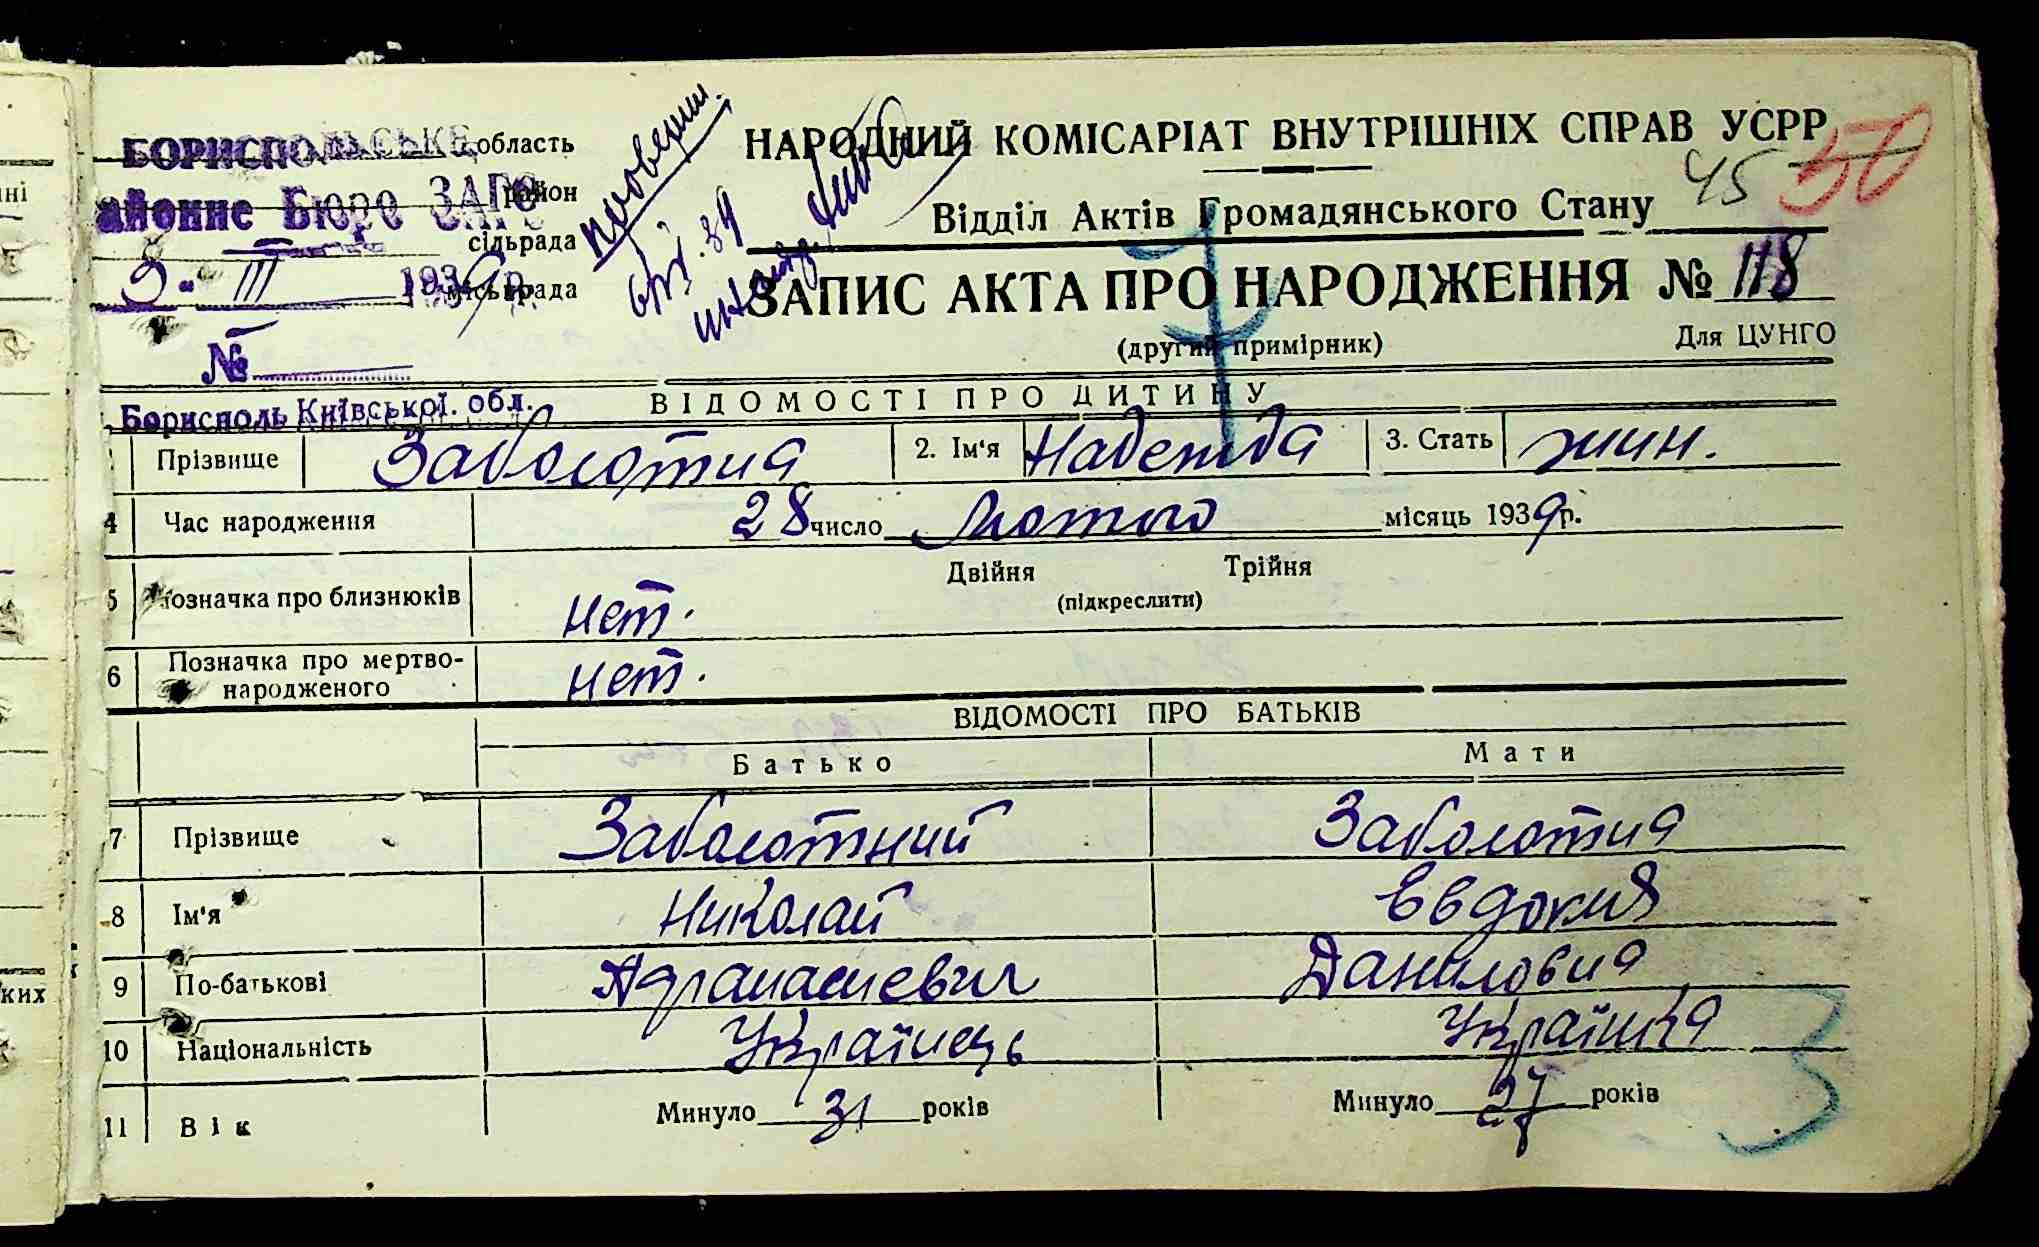 БОРИСПОЛЬСЬКЕ область
айонне Бюро ЗАГС район
сільрада
3 - III 1939 р. міськрада
№
Борисполь Київської обл.
проверили
НАРОДНИЙ КОМІСАРІАТ ВНУТРІШНІХ СПРАВ УСРР
45 50
Відділ Актів Громадянського Стану
ЗАПИС АКТА ПРО НАРОДЖЕННЯ № 118
(другий примірник)
Для ЦУНГО
ВІДОМОСТІ ПРО ДИТИНУ
Прізвище Заболотна 2. Ім'я Надежда 3. Стать жин.
4 Час народження 28 число Лютого місяць 1939 р.
5 Позначка про близнюків нет. Двійня Трійня
(підкреслити)
6 Позначка про мертво-
народженого нет.
ВІДОМОСТІ ПРО БАТЬКІВ
Батько Мати
7 Прізвище Заболотний Заболотна
8 Ім'я Николай Евдокия
9 По-батькові Афанасиевич Даниловна
10 Національність Українець Українка
11 Вік Минуло 31 років Минуло 27 років
3
ких